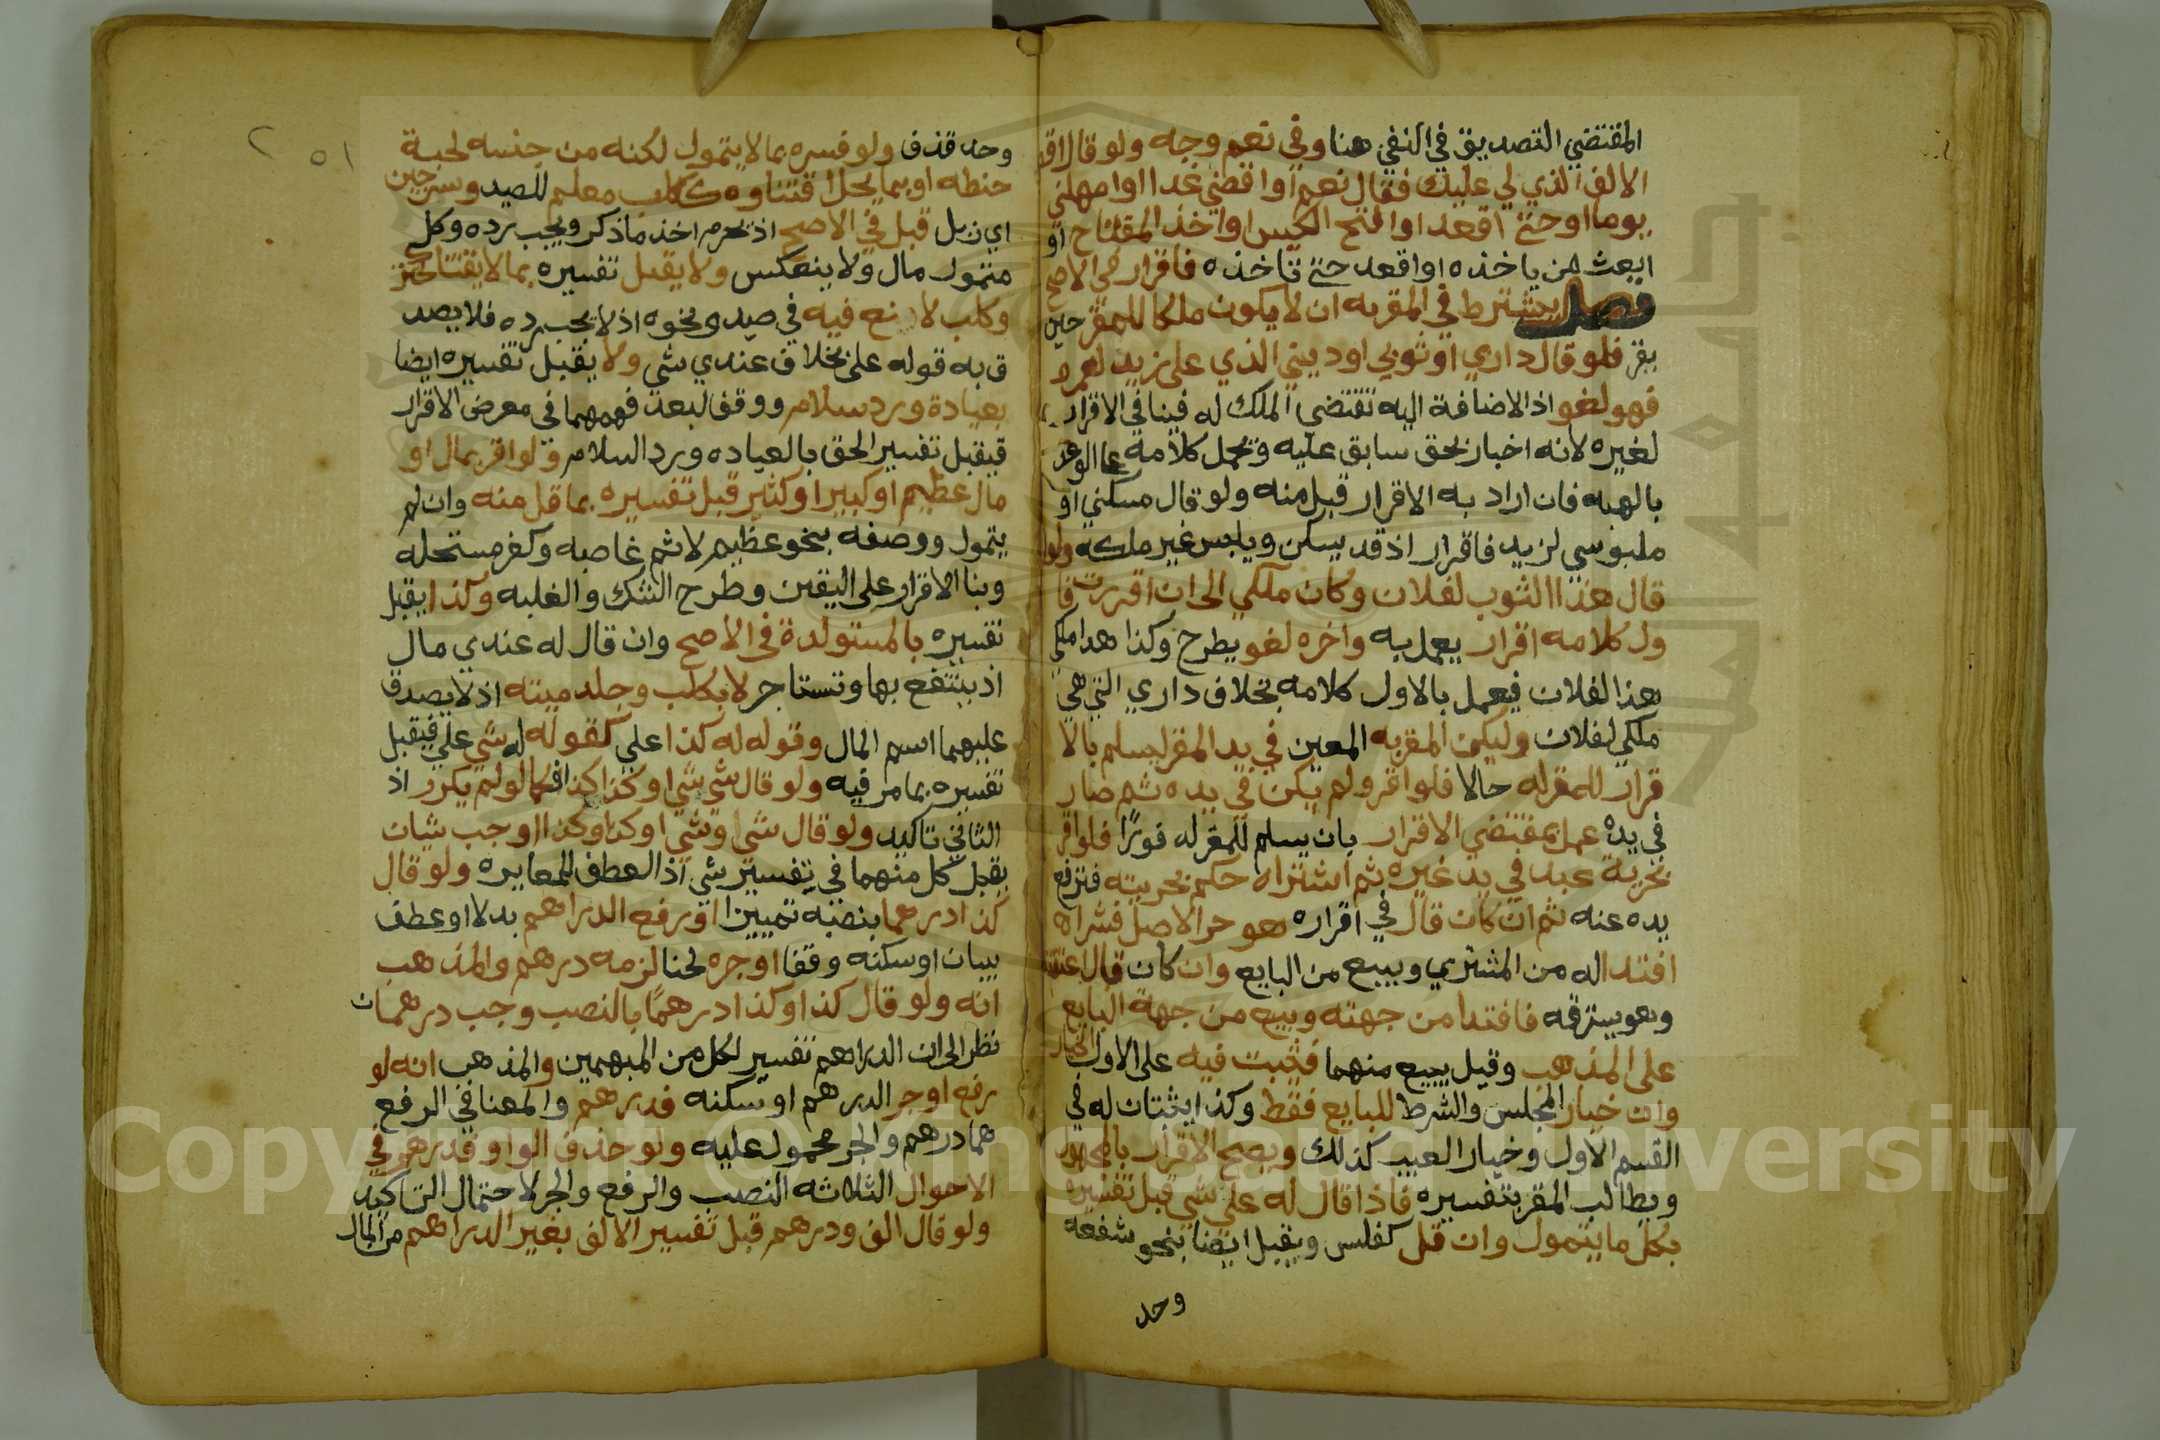 المقتضي التصديق في النفي هنا وفي نعم وجه ولو قال اقض
الالف الذي لي عليك فقال نعم او اقضي غدا او امهلني
يوما او حتى اقعد او افتح الكيس او اخذ المفتاح او
ابعث من ياخذه او اقعد حتى تاخذه فاقرار في الاصح
فصل يشترط في المقر به ان لا يكون ملكا للمقر حين
يقر فلو قال داري او ثوبي او ديني الذي على زيد لعمرو
فهو لغو اذ الاضافة اليه تقتضي الملك له فينافي الاقرار
لغيره لانه اخبار بحق سابق عليه ويحمل كلامه على الوعد
بالهبه فان اراد به الاقرار قبل منه ولو قال مسكني او
ملبوسي لزيد فاقرار اذ قد يسكن ويلبس غير ملكه ولو
قال هذا الثوب لفلان وكان ملكي الى ان اقررت فا
ول كلامه اقرار يعمل به واخره لغو يطرح وكذا هدا ملكي
هذا لفلان فيعمل بالاول كلامه بخلاف داري التي هي
ملكي لفلان وليكن المقر به المعين في يد المقر ليسلم بالا
قرار للمقر له حالا فلو اقر ولم يكن في يده ثم صار
في يده عمل بمقتضي الاقرار بان يسلم للمقر له فورًا فلو اقر
بحرية عبد في يد غيره ثم اشتراه حكم بحريته فترفع
يده عنه ثم ان كان قال في اقراره هو حر الاصل فشراه
افتدا له من المشتري وبيع من البايع وان كان قال اعتقه
وهو يسترقه فافتدا من جهته وبيع من جهة البايع
على المذهب وقيل بيع منهما فيثبت فيه على الاول الخيار
وان خيار المجلس والشرط للبايع فقط وكذا يثبتان له في
القسم الاول وخيار العيب كذلك ويصح الاقرار بالمجهول
ويطالب المقر بتفسيره فاذا قال له علي شي قبل تفسيره
بكل ما يتمول وان قل كفلس ويقبل ايضا بنحو شفعه
وحد
٢ ٥١
وحد قذف ولو فسره بما لا يتمول لكنه من جنسه لحبة
حنطه او بما يحل اقتناوه ككلب معلم للصيد وسرجين
اي زبل قبل في الاصح اذ يحرم اخذ ما ذكر ويجب رده وكل
متمول مال ولا ينعكس ولا يقبل تفسيره بما لا يقتنا كخنز
وكلب لا نفع فيه في صيد ونحوه اذ لا يجب رده فلا يصد
ق به قوله علي بخلاف عندي شي ولا يقبل تفسيره ايضا
بعيادة ورد سلام ووقف لبعد فهمهما في معرض الاقرار
فيقبل تفسير الحق بالعياده ورد السلام ولو اقر بمال او
مال عظيم او كبير او كثير قبل تفسيره بما قل منه وان لم
يتمول ووصفه بنحو عظيم لاثم غاصبه وكفر مستحله
وبنا الاقرار على اليقين وطرح الشك والغلبه وكذا يقبل
تفسيره بالمستولدة في الاصح وان قال له عندي مال
اذ ينتفع بها وتستاجر لا بكلب وجلد ميته اذ لا يصدق
عليهما اسم المال وقوله له كذا علي كقوله له شي علي فيقبل
تفسيره بما مر فيه ولو قال شي شي او كذا كذا فكما لو لم يكرر اذ
الثاني تاكيد ولو قال شي وشي او كذا وكذا وجب شيان
يقبل كل منهما في تفسير شي اذ العطف للمغايره ولو قال
كذا درهما بنصبه تمييزا او رفع الدراهم بدلا او عطف
بيان او سكنه وقفا او جره لحنا لزمه درهم والمذهب
انه ولو قال كذا وكذا درهمًا بالنصب وجب درهمان
نظر الى ان الدراهم تفسير لكل من المبهمين والمذهب انه لو
رفع او جر الدرهم او سكنه فدرهم والمعنا في الرفع
هما درهم والجر محمول عليه ولو حذف الواو فدرهم في
الاحوال الثلاثه النصب والرفع والجر لاحتمال التاكيد
ولو قال الف ودرهم قبل تفسير الالف بغير الدراهم من المال
Copyright © King Saud University